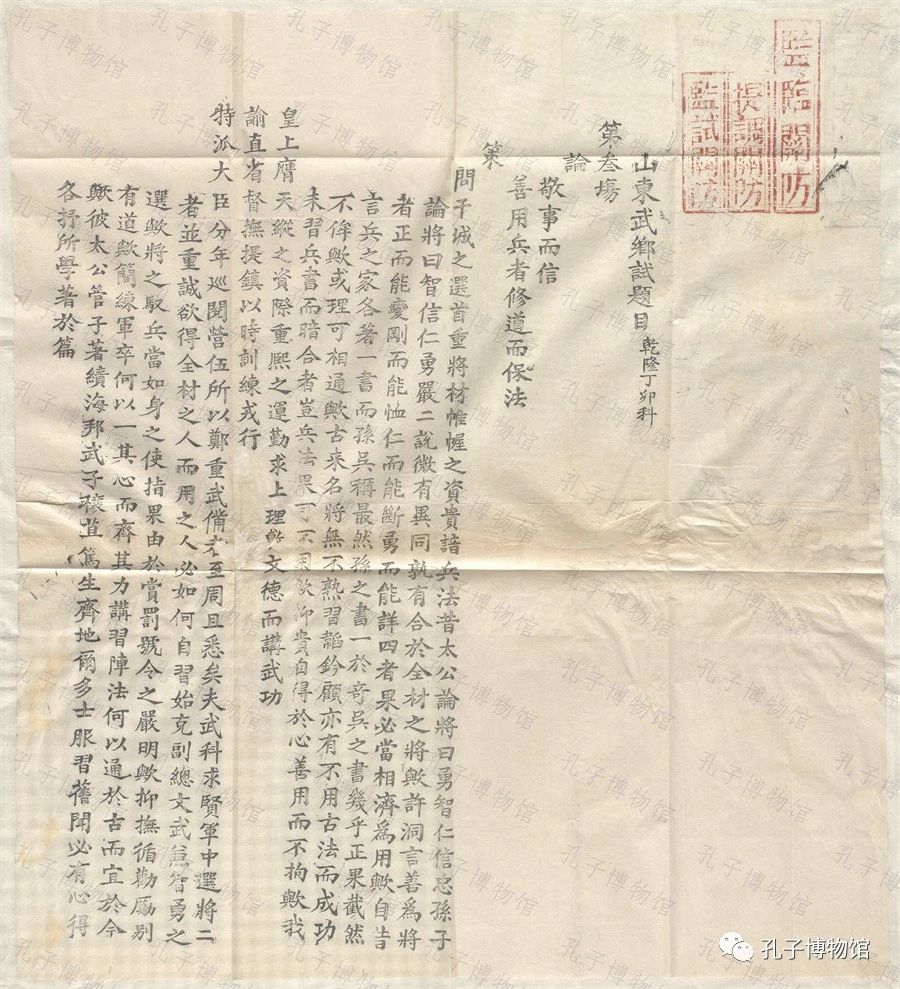 監臨關防
提調關防
監試關防
山東武鄉試題目乾隆丁卯科
第叁塲
論
敬事而信
善用兵者修道而保法
策
問干城之選首重將材帷幄之資貴諳兵法昔太公論將曰勇智仁信忠孫子
論將曰智信仁勇嚴二說微有異同孰有合於全材之將歟許洞言善爲將
者正而能變剛而能恤仁而能斷勇而能詳四者果必當相濟爲用歟自昔
言兵之家各著一書而孫吳稱最然孫之書一於奇吳之書幾乎正果截然
不侔歟或理可相通歟古来名將無不熟習韜鈐顧亦有不用古法而成功
未習兵書而暗合者豈兵法果可不用歟抑貴自得於心善用而不拘歟我
皇上膺
天縱之資際重熙之運勤求上理敷文德而講武功
諭直省督撫提鎮以時訓練戎行
特派大臣分年巡閱營伍所以鄭重武備者至周且悉矣夫武科求賢軍中選將二
者並重誠欲得全材之人而用之人必如何自習始克副總文武兼智勇之
選歟將之馭兵當如身之使指果由於賞罰號令之嚴明歟抑撫循勸勵别
有道歟簡練軍卒何以一其心而齊其力講習陣法何以通於古而宜於今
歟彼太公管子著績海邦武子穰苴篤生齊地爾多士服習舊聞必有心得
各抒所學著於篇
孔子博物馆